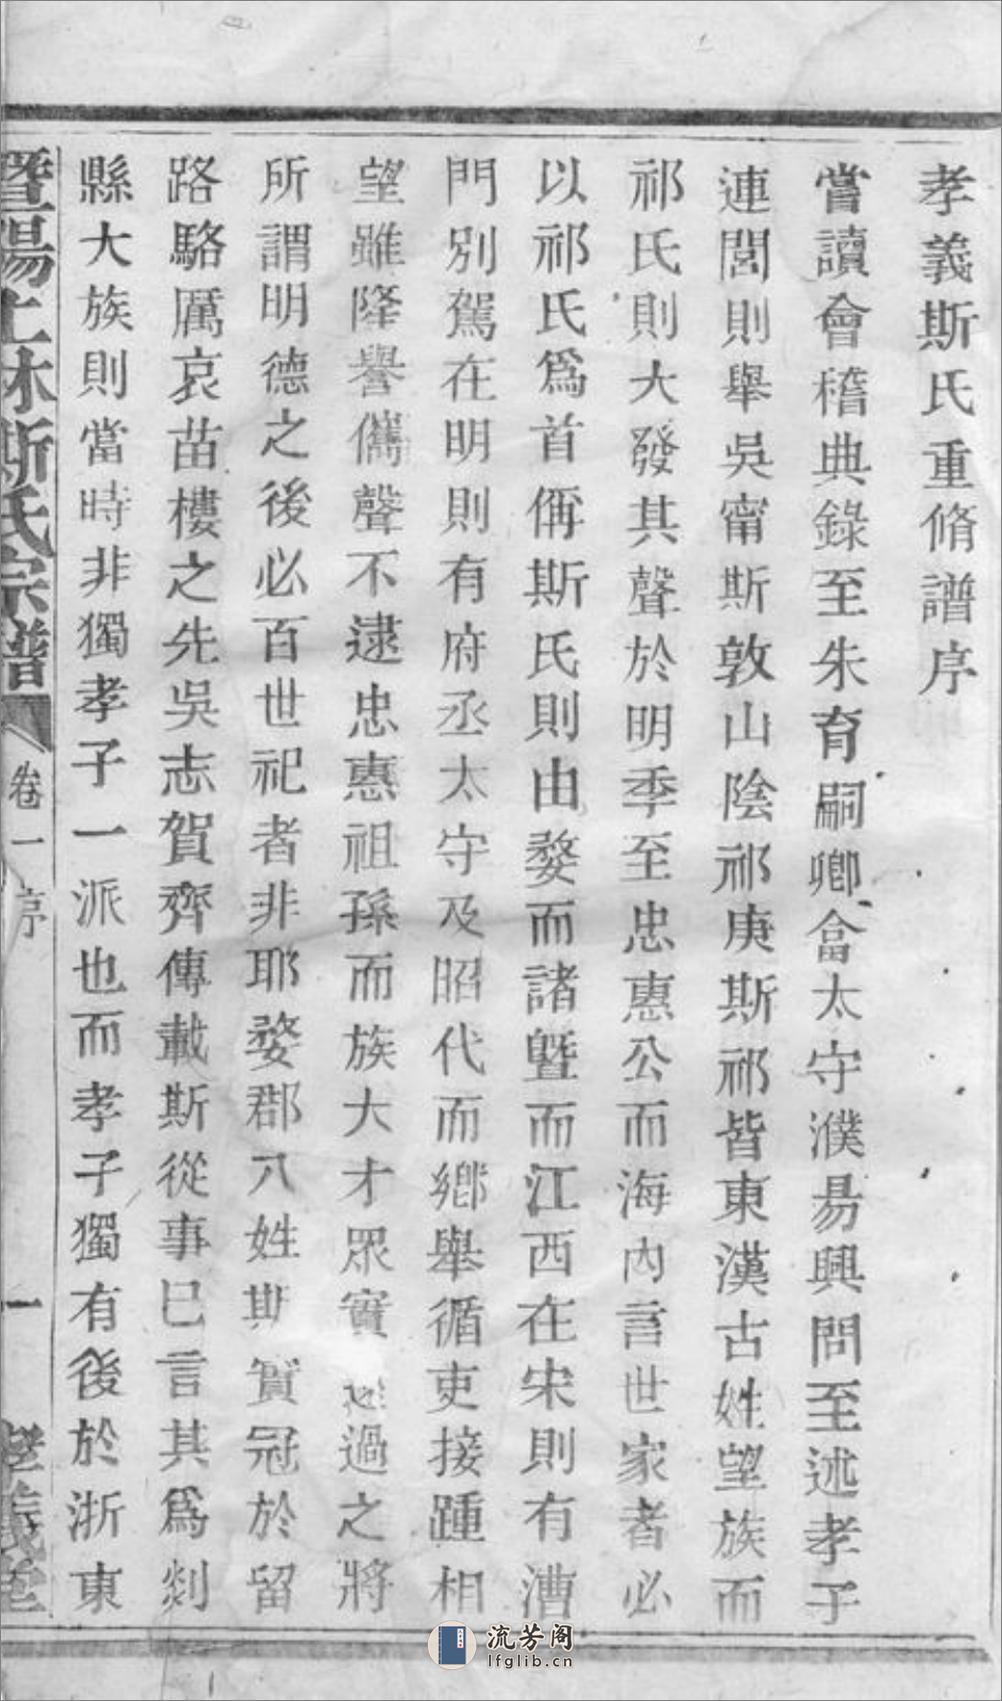 孝義斯氏重脩譜序
嘗讀會稽典錄至朱育嗣卿畣太守濮昜興問至述孝子
連閭則舉吳甯斯敦山陰祁庚斯祁皆東漢古姓望族而
祁氏則大發其聲於明季至忠惠公而海內言世家者必
以祁氏爲首偁斯氏則由婺而諸曁而江西在宋則有漕
門別駕在明則有府丞太守及昭代而鄉舉循吏接踵相
望雖降譽儁聲不逮忠惠祖孫而族大才眾實過之將
所謂明德之後必百世祀者非耶婺郡八姓斯實冠於留
路駱厲哀苗樓之先吳志賀齊傳載斯從事巳言其爲剡
縣大族則當時非獨孝子一派也而孝子獨有後於浙東
暨陽上林斯氏宗譜 卷一 序 一 孝義堂
流芳阁
lfglib.cn